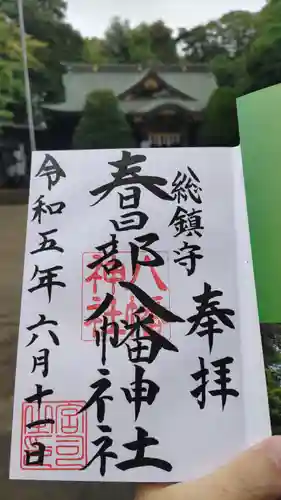 奉拝
総鎮守
春日部八幡神社
八幡
神社
令和五年六月十一日
宮司
之印